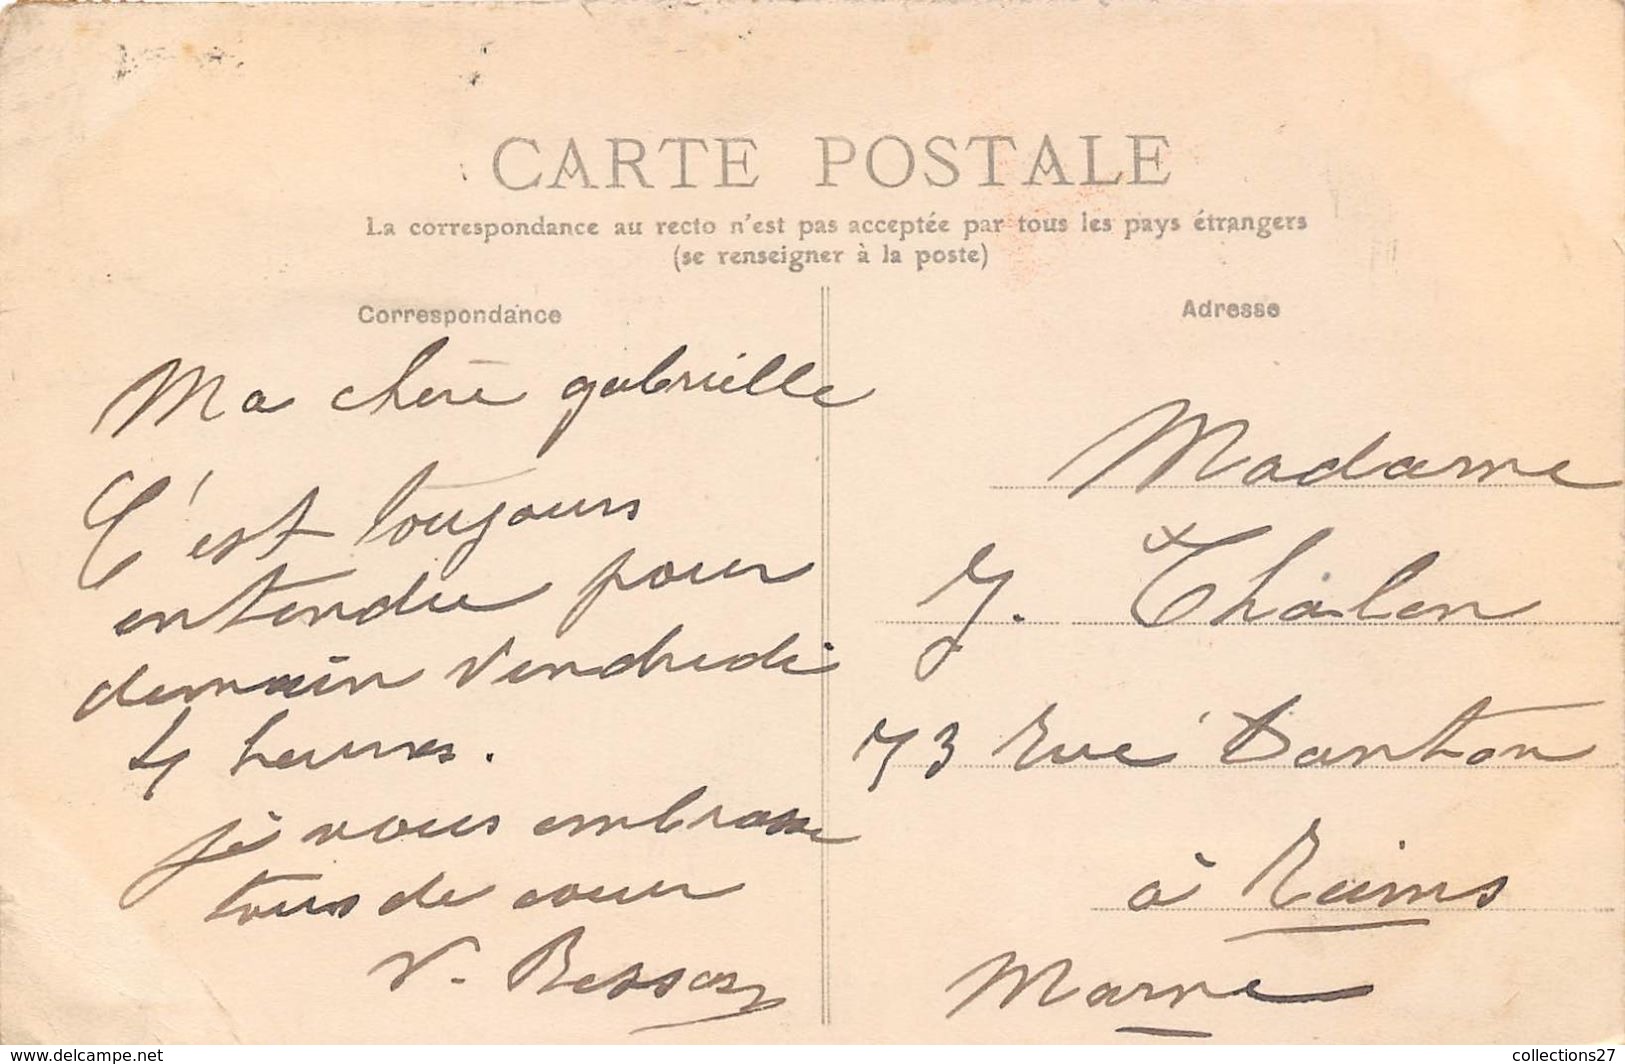 CARTE POSTALE
La correspondance au recto n'est pas acceptée par tous les pays étrangers
(se renseigner à la poste)
Correspondance
Adresse
Ma chère gabrielle
C'est toujours
entendu pour
demain Vendredi
4 heures.
je vous embrasse
tous de cœur
V. Besson
Madame
J. Thalen
73 rue Danton
à Reims
Marne
www.delcampe.net
collections27